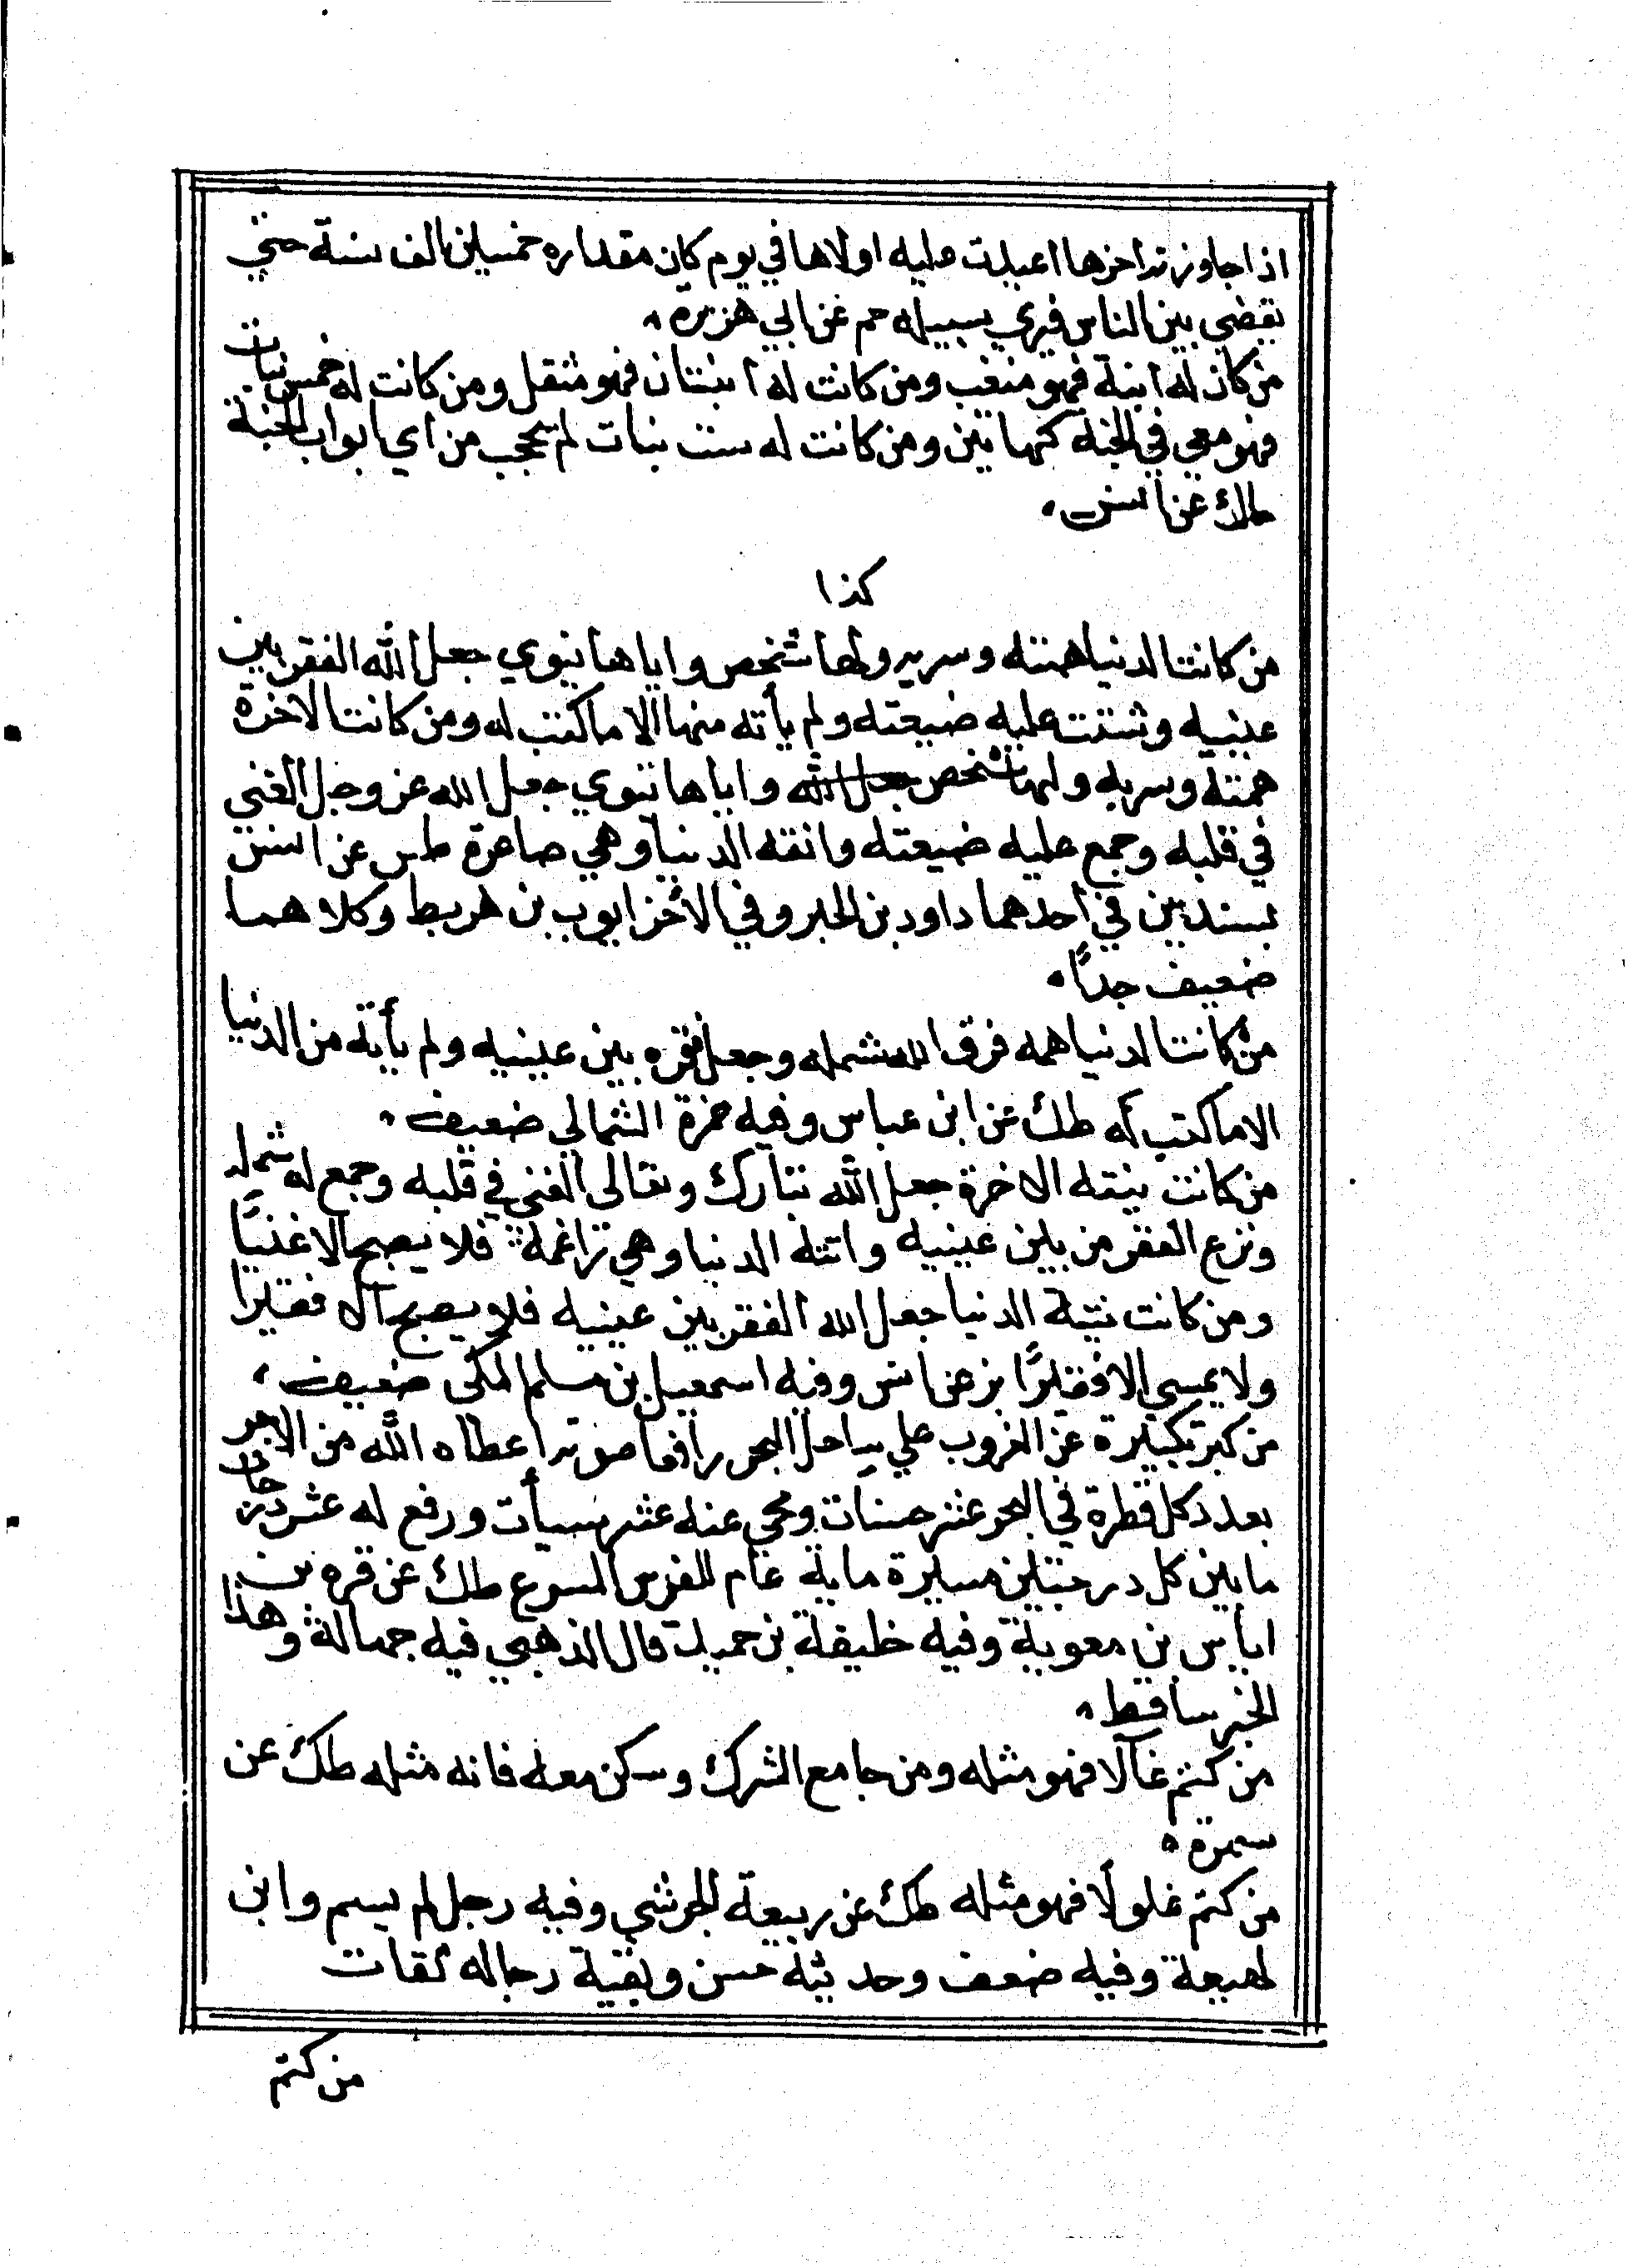 اذا جاوزته اخرها اعيدت عليه اولاها في يوم كان مقداره خمسين الف سنة حتي
يقضى بين الناس فيري سبيله حم عن ابي هريرة
من كان له ابنة فهو متعب ومن كانت له ابنتان فهو مثقل ومن كانت له خمس بنات
فهو معي في الجنة كهاتين ومن كانت له ست بنات لم يحجب من اي ابواب الجنة
طك عن انس
كذا
من كانت الدنيا همته وسريره ولها شخص واياها ينوي جعل الله الفقر بين
عينيه وشتت عليه ضيعته ولم يأته منها الا ما كتب له ومن كانت الاخرة
همته وسريره ولها شخص جعل الله واياها ينوي جعل الله عز وجل الغني
في قلبه وجمع عليه ضيعته واتته الدنيا وهي صاغرة طس عن انس
بسندين في احدهما داود بن المحبر وفي الأخر ايوب بن هريط وكلاهما
ضعيف جداً
من كانت الدنيا همه فرق الله شمله وجعل فقره بين عينيه ولم يأته من الدنيا
الا ما كتب له طك عن ابن عباس وفيه حمزة الثمالي ضعيف
من كانت نيته الاخرة جعل الله تبارك وتعالى الغني في قلبه وجمع له شمله
ونزع الفقر من بين عينيه واتته الدنيا وهي راغمة فلا يصبح الا غنيًّا
ومن كانت نيته الدنيا جعل الله الفقر بين عينيه فلا يصبح الا فقيرا
ولا يمسي الا فقيرًا بز عن انس وفيه اسمعيل بن مسلم المكي ضعيف
من كبر تكبيرة عند الغروب علي ساحل البحر رافعا صوته اعطاه الله من الاجر
بعدد كل قطرة في البحر عشر حسنات ومحي عنه عشر سيأت ورفع له عشر درجات
ما بين كل درجتين مسيرة ماية عام للفرس المسرع طك عن قره بن
اياس بن معوية وفيه خليفة بن حميد قال الذهبي فيه جهالة وهذا
الخبر ساقط
من كتم غالا فهو مثله ومن جامع المشرك وسكن معه فانه مثله طك عن
سمرة
من كتم غلولًا فهو مثله طك عن ربيعة الجرشي وفيه رجل لم يسم وابن
لهيعة وفيه ضعف وحديثه حسن وبقية رجاله ثقات
من كتم